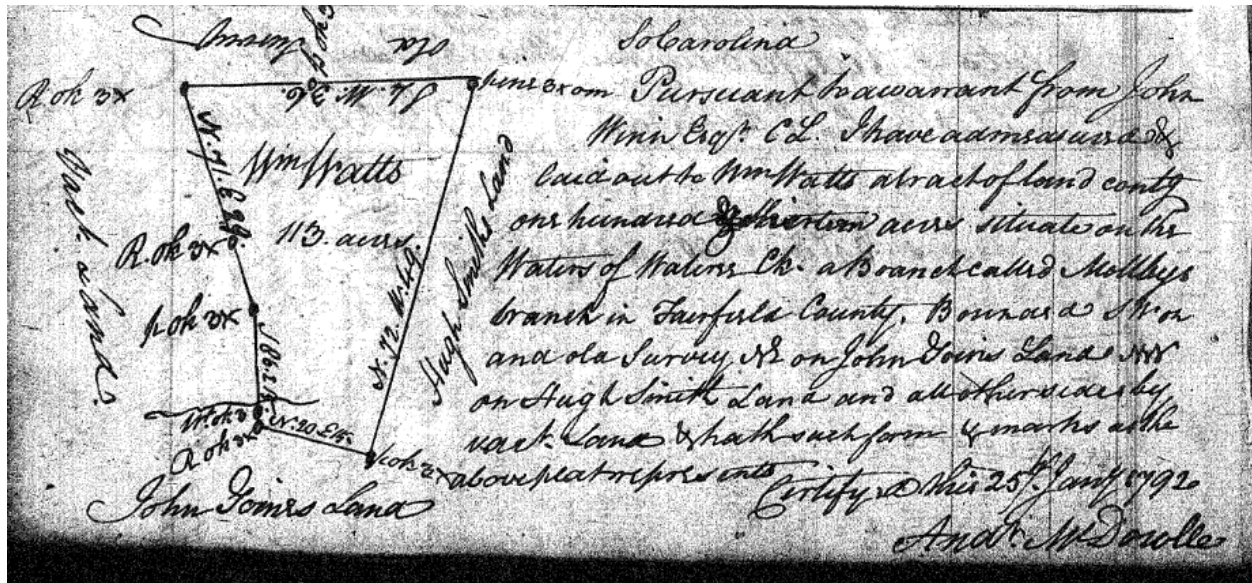 Old Survey
P. ok 3x
R ok 3x
S. W. 36.
pine 3x om
N. 71. E 39.
Wm Watts
113. acres
Vack. Land.
R. ok 3x
p. ok 3x
N. 72. W. 49.
Hugh Smiths Land
S 18 E 15
W. ok 3
R ok 3x
N. 20 E 15.
p. ok 3x
John Joines Land
So Carolina
Pursuant to a warrant from John
Winn Esqr. C L. I have admeasured &
laid out to Wm Watts a tract of land contg
one hundred & thirteen acres situate on the
Waters of Wateree Ck. a Branch called Mobleys
branch in Fairfield County. Bounded SW on
and old Survey, SE on John Joines Land NW
on Hugh Smith Land and all other sides by
vact. Land & hath such form & marks as the
above plat represents
Certifyed this 25th. Jany 1792
Andw. McDowlle